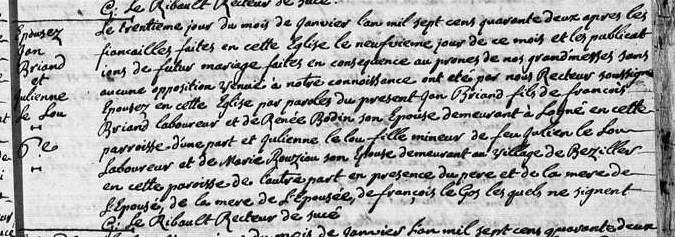 C: Le Ribault Recteur de sucé.
Epousez
Jan
Briand
et
Julienne
le Lou
Le trentieme jour du mois de Janvier l'an mil sept cens quarante deux apres les
fiancailles faites en cette Eglise le neufvieme jour de ce mois et les publicat
ions de futur mariage faites en consequence au prones de nos grandmesses sans
aucune opposition venüe à notre connoissance ont eté par nous Recteur soussigné
Epousez en cette Eglise par paroles du present Jan Briand fils de francois
Briand laboureur et de Renée Bodin son Epouse demeurant à en cette
parroisse d'une part et Julienne le lou fille mineur de feu Julien le Lou
Laboureur et de Marie Rouziou son Epouse demeurant au village de
en cette paroisse de l'autre part en presence du pere et de la mere de
L'Epousé, de la mere de L'Epousée, de françois le Gos lesquels ne signent
C: Le Ribault Recteur de sucé
du mois de Janvier l'an mil sept cens quarante deux